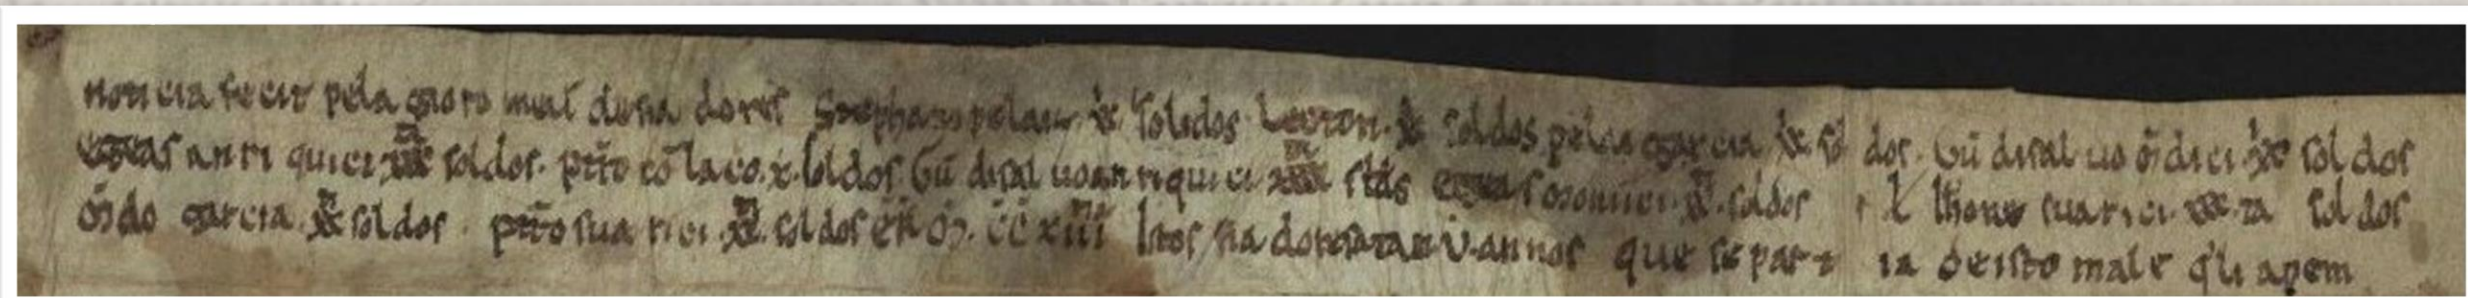 noticia fecit pelagio romeu de fiadores Stephano pelaiz .xxi. solidos lecton .xxi. soldos pelai garcia .xxi. soldos. Gũdisaluo mẽdici .xxi. soldos
egeas anriquici xxxta soldos. petro cõlaco .x. soldos Gũdisaluo anriquici xxxxta soldos egeas moniici .xxti. soldos i l Ihoane suarici .xxx.ta soldos
mẽdo garcia .xxti. soldos. petro suarici .xxti. soldos era m. cc xiiitia Istos fiadores atan .v. annos que se partia de isto male que li avem